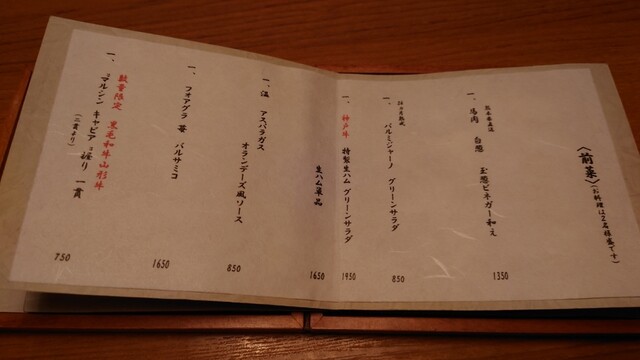 〈前菜〉(お料理は2名様盛です)
一、熊本香直送
馬肉 白葱 玉葱ビネガー和え
1350
一、24ヵ月熟成
パルミジャーノ グリーンサラダ
850
一、神戸牛 特製生ハム グリーンサラダ
1950
生ハム単品
1650
一、温 アスパラガス
オランデーズ風ソース
850
一、フォアグラ 茸 バルサミコ
1650
一、数量限定 黒毛和牛山形牛
マルシン キャビア 握り 一貫
(二貫より)
750